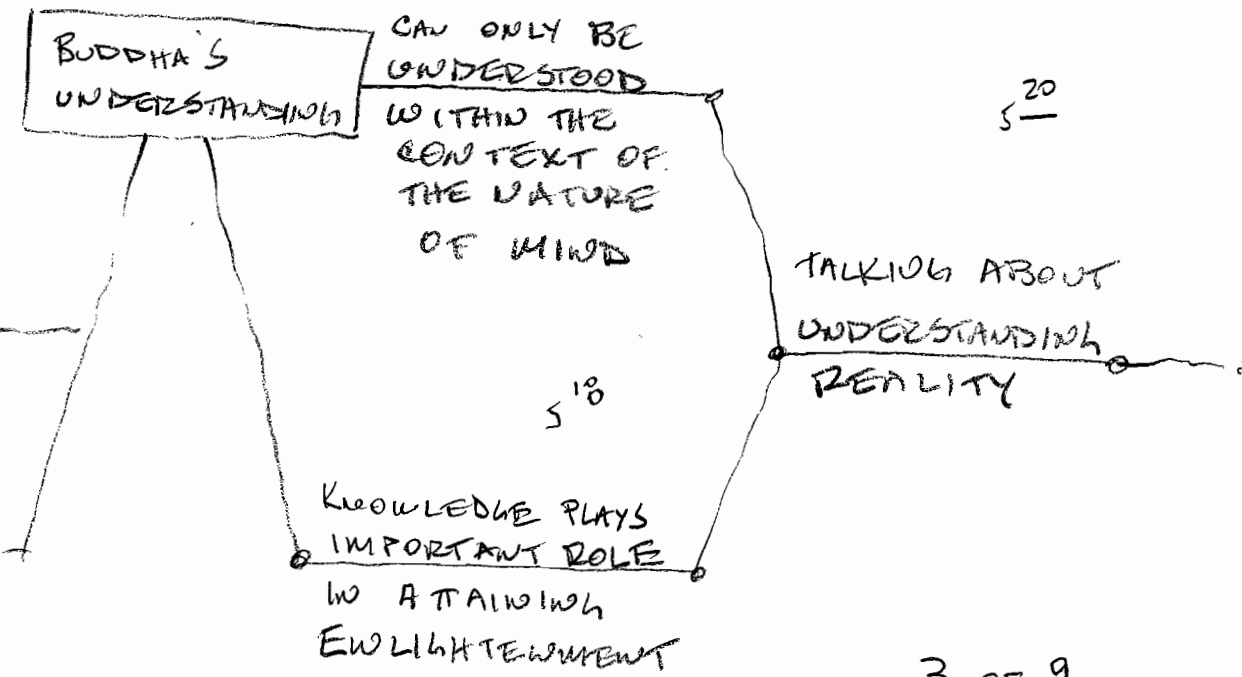 BUDDHA'S
UNDERSTANDING
CAN ONLY BE
UNDERSTOOD
WITHIN THE
CONTEXT OF
THE NATURE
OF MIND
5 20
TALKING ABOUT
UNDERSTANDING
REALITY
5 10
KNOWLEDGE PLAYS
IMPORTANT ROLE
IN ATTAINING
ENLIGHTENMENT
3 OF 9